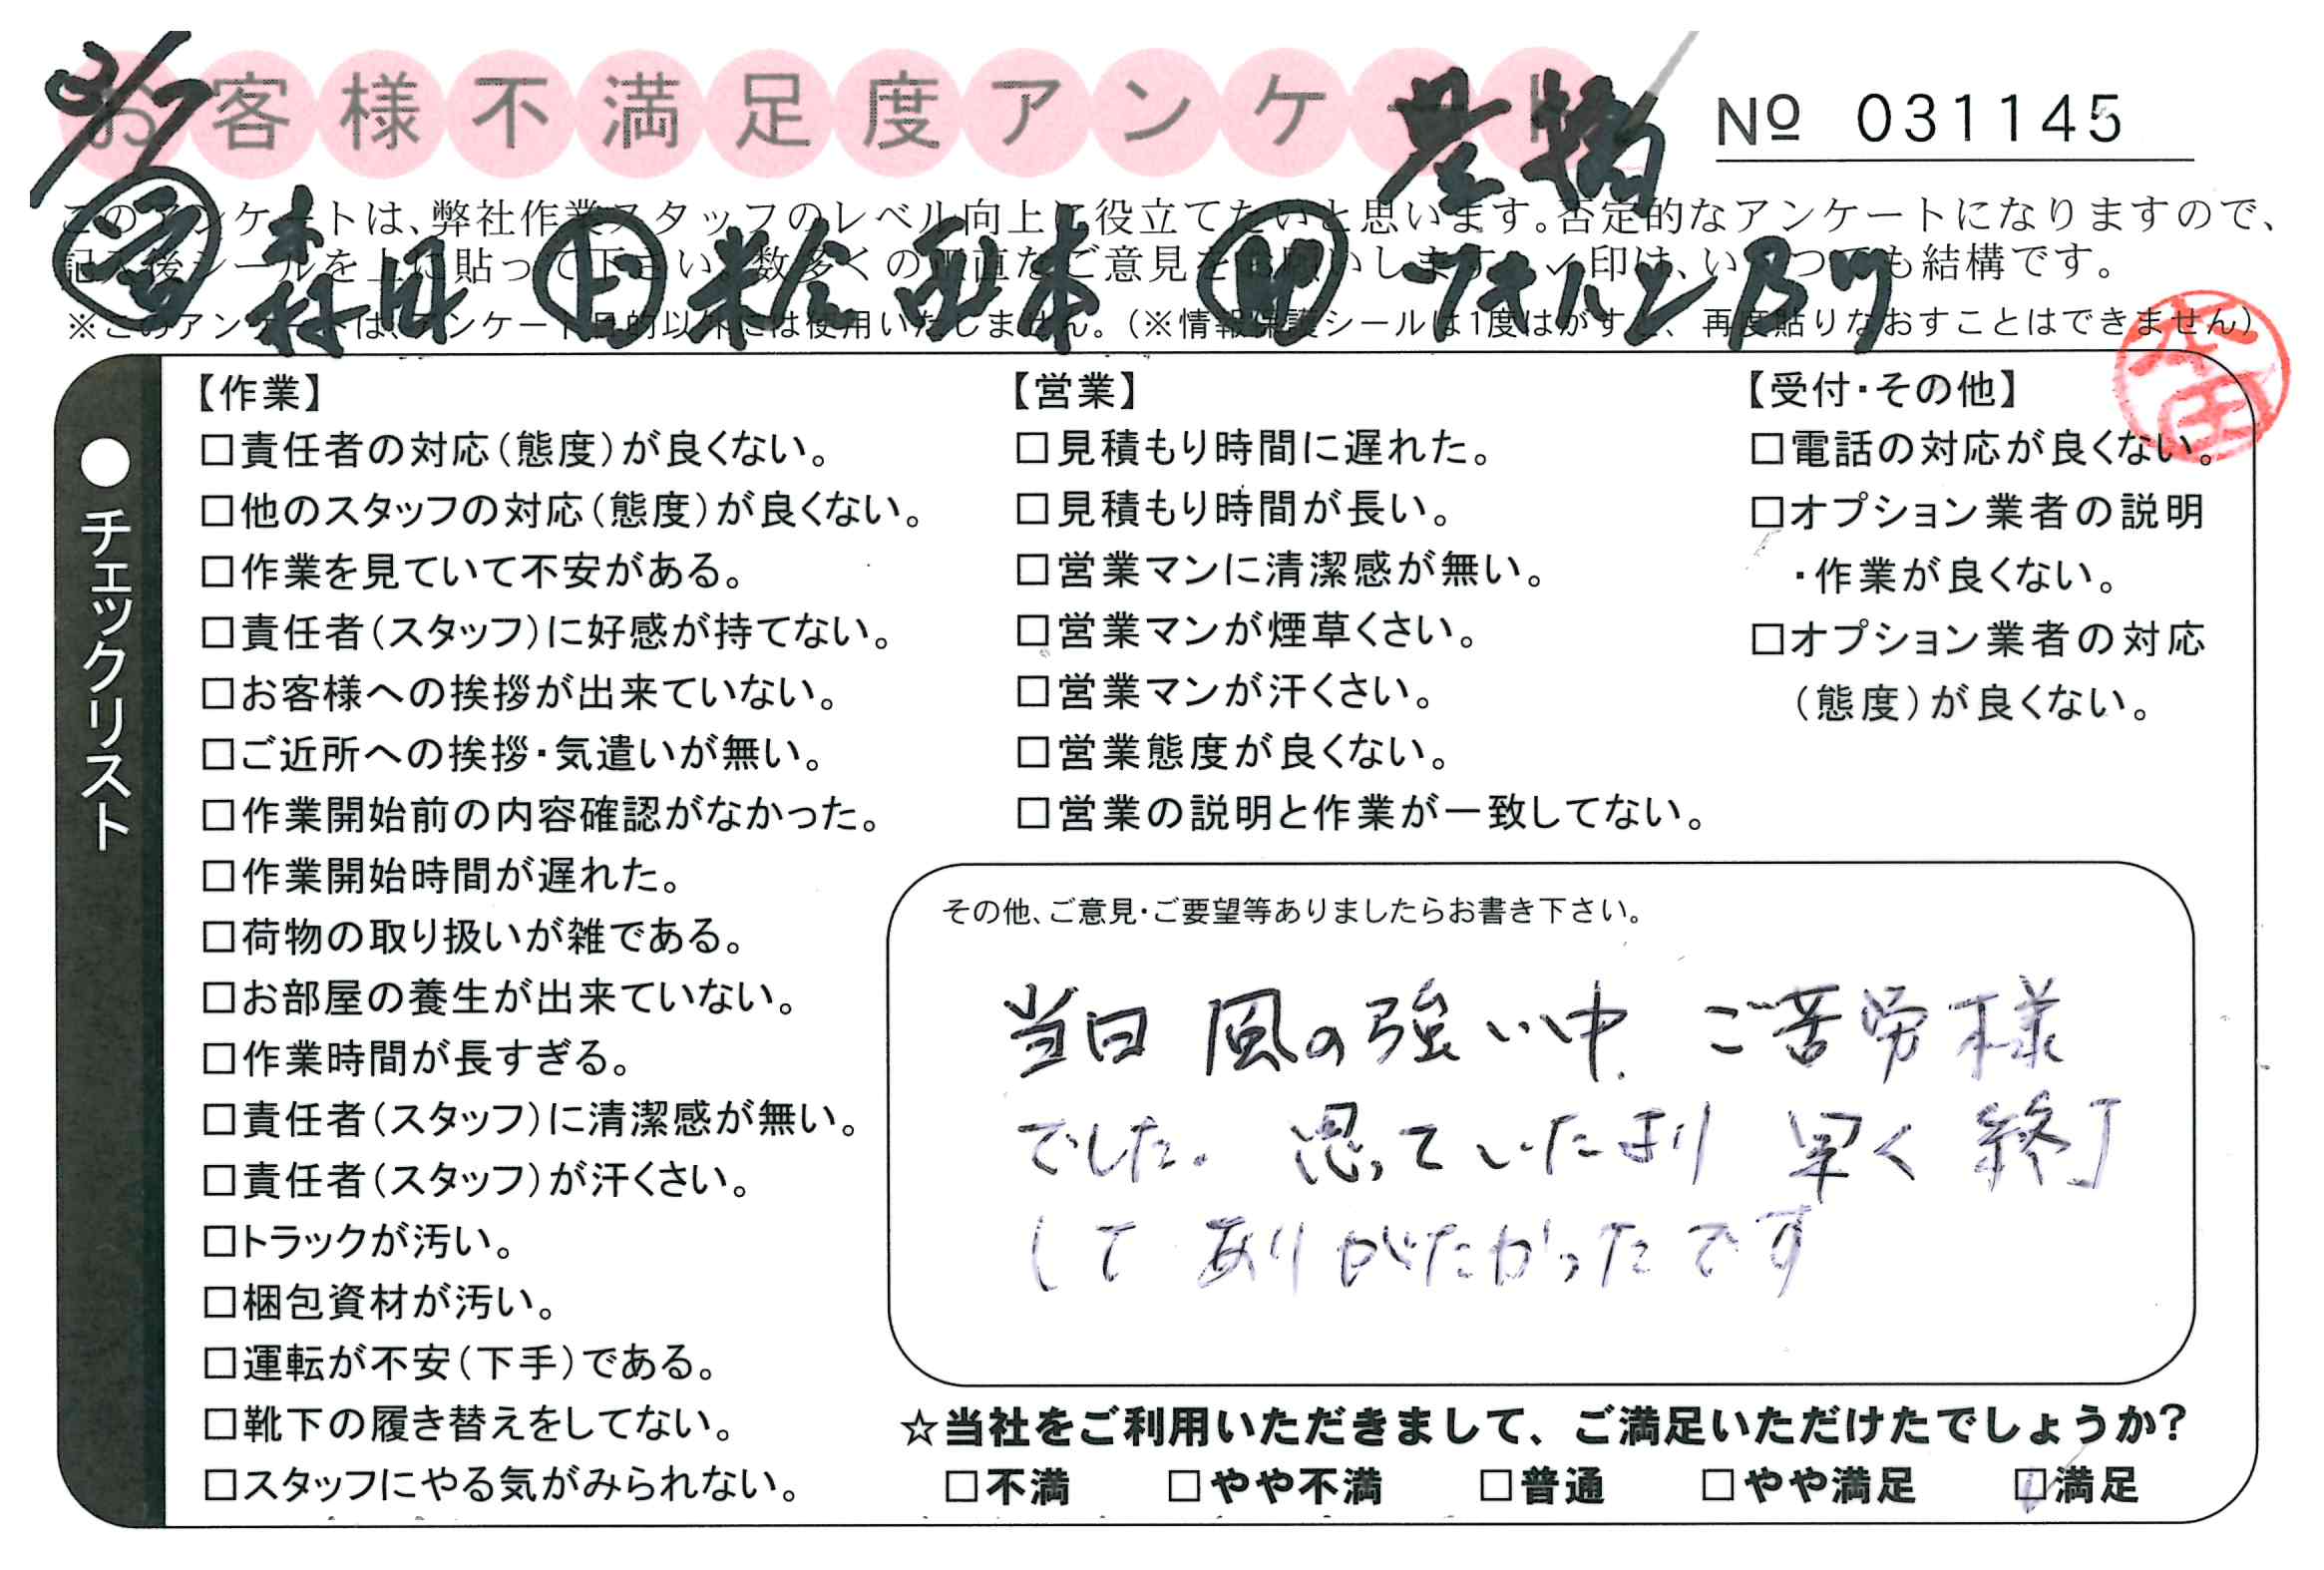 お客様不満足度アンケート
№ 031145
3/7
このアンケートは、弊社作業スタッフのレベル向上に役立てたいと思います。否定的なアンケートになりますので、
記入後シールを上に貼って下さい。数多くの正直なご意見をお願いします。✓印は、いくつでも結構です。
※このアンケートは、アンケート目的以外には使用いたしません。(※情報保護シールは1度はがすと、再度貼りなおすことはできません)
営 森田 作 米倉 西本
●チェックリスト
【作業】
□責任者の対応(態度)が良くない。
□他のスタッフの対応(態度)が良くない。
□作業を見ていて不安がある。
□責任者(スタッフ)に好感が持てない。
□お客様への挨拶が出来ていない。
□ご近所への挨拶・気遣いが無い。
□作業開始前の内容確認がなかった。
□作業開始時間が遅れた。
□荷物の取り扱いが雑である。
□お部屋の養生が出来ていない。
□作業時間が長すぎる。
□責任者(スタッフ)に清潔感が無い。
□責任者(スタッフ)が汗くさい。
□トラックが汚い。
□梱包資材が汚い。
□運転が不安(下手)である。
□靴下の履き替えをしてない。
□スタッフにやる気がみられない。
【営業】
□見積もり時間に遅れた。
□見積もり時間が長い。
□営業マンに清潔感が無い。
□営業マンが煙草くさい。
□営業マンが汗くさい。
□営業態度が良くない。
□営業の説明と作業が一致してない。
【受付・その他】
□電話の対応が良くない。
□オプション業者の説明
・作業が良くない。
□オプション業者の対応
(態度)が良くない。
その他、ご意見・ご要望等ありましたらお書き下さい。
当日 風の強い中 ご苦労様
でした。思っていたより 早く 終了
して ありがたかったです
☆当社をご利用いただきまして、ご満足いただけたでしょうか?
□不満 □やや不満 □普通 □やや満足 ☑満足